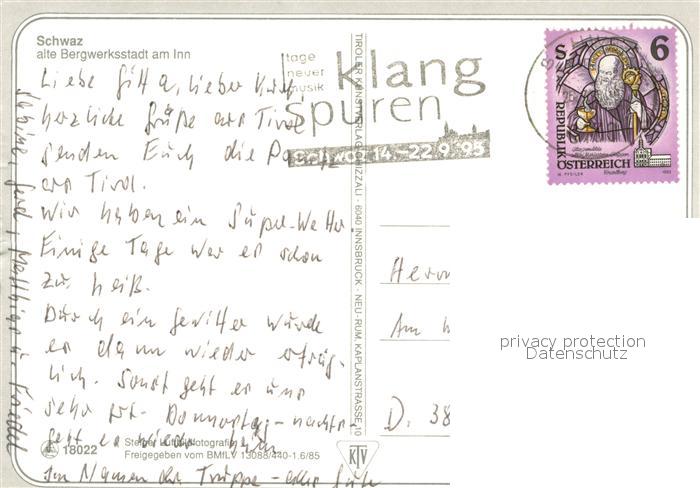 Schwaz
alte Bergwerksstadt am Inn
Liebe Gitta, lieber
herzliche Grüße aus Tirol
senden Euch die
aus Tirol.
Wir haben ein Super-Wetter.
Einige Tage war es schon
zu heiß.
Durch ein Gewitter wurde
es dann wieder erträg-
lich. Sonst geht es uns
sehr gut. Donnerstag-nachts
geht es wieder heim.
Im Namen der Truppe - alles Gute
Sabine, Gerd, Matthias u. Friedel
18022
Freigegeben vom BMILV 13088/440-1.6/85
TIROLER KUNSTVERLAG CHIZZALI · 6040 INNSBRUCK - NEU-RUM, KAPLANSTRASSE 10
KTV
tage
neuer
musik
klang
spuren
14.-22.9.96
6
REPUBLIK
ÖSTERREICH
Herrn
Am
D. 38
privacy protection
Datenschutz